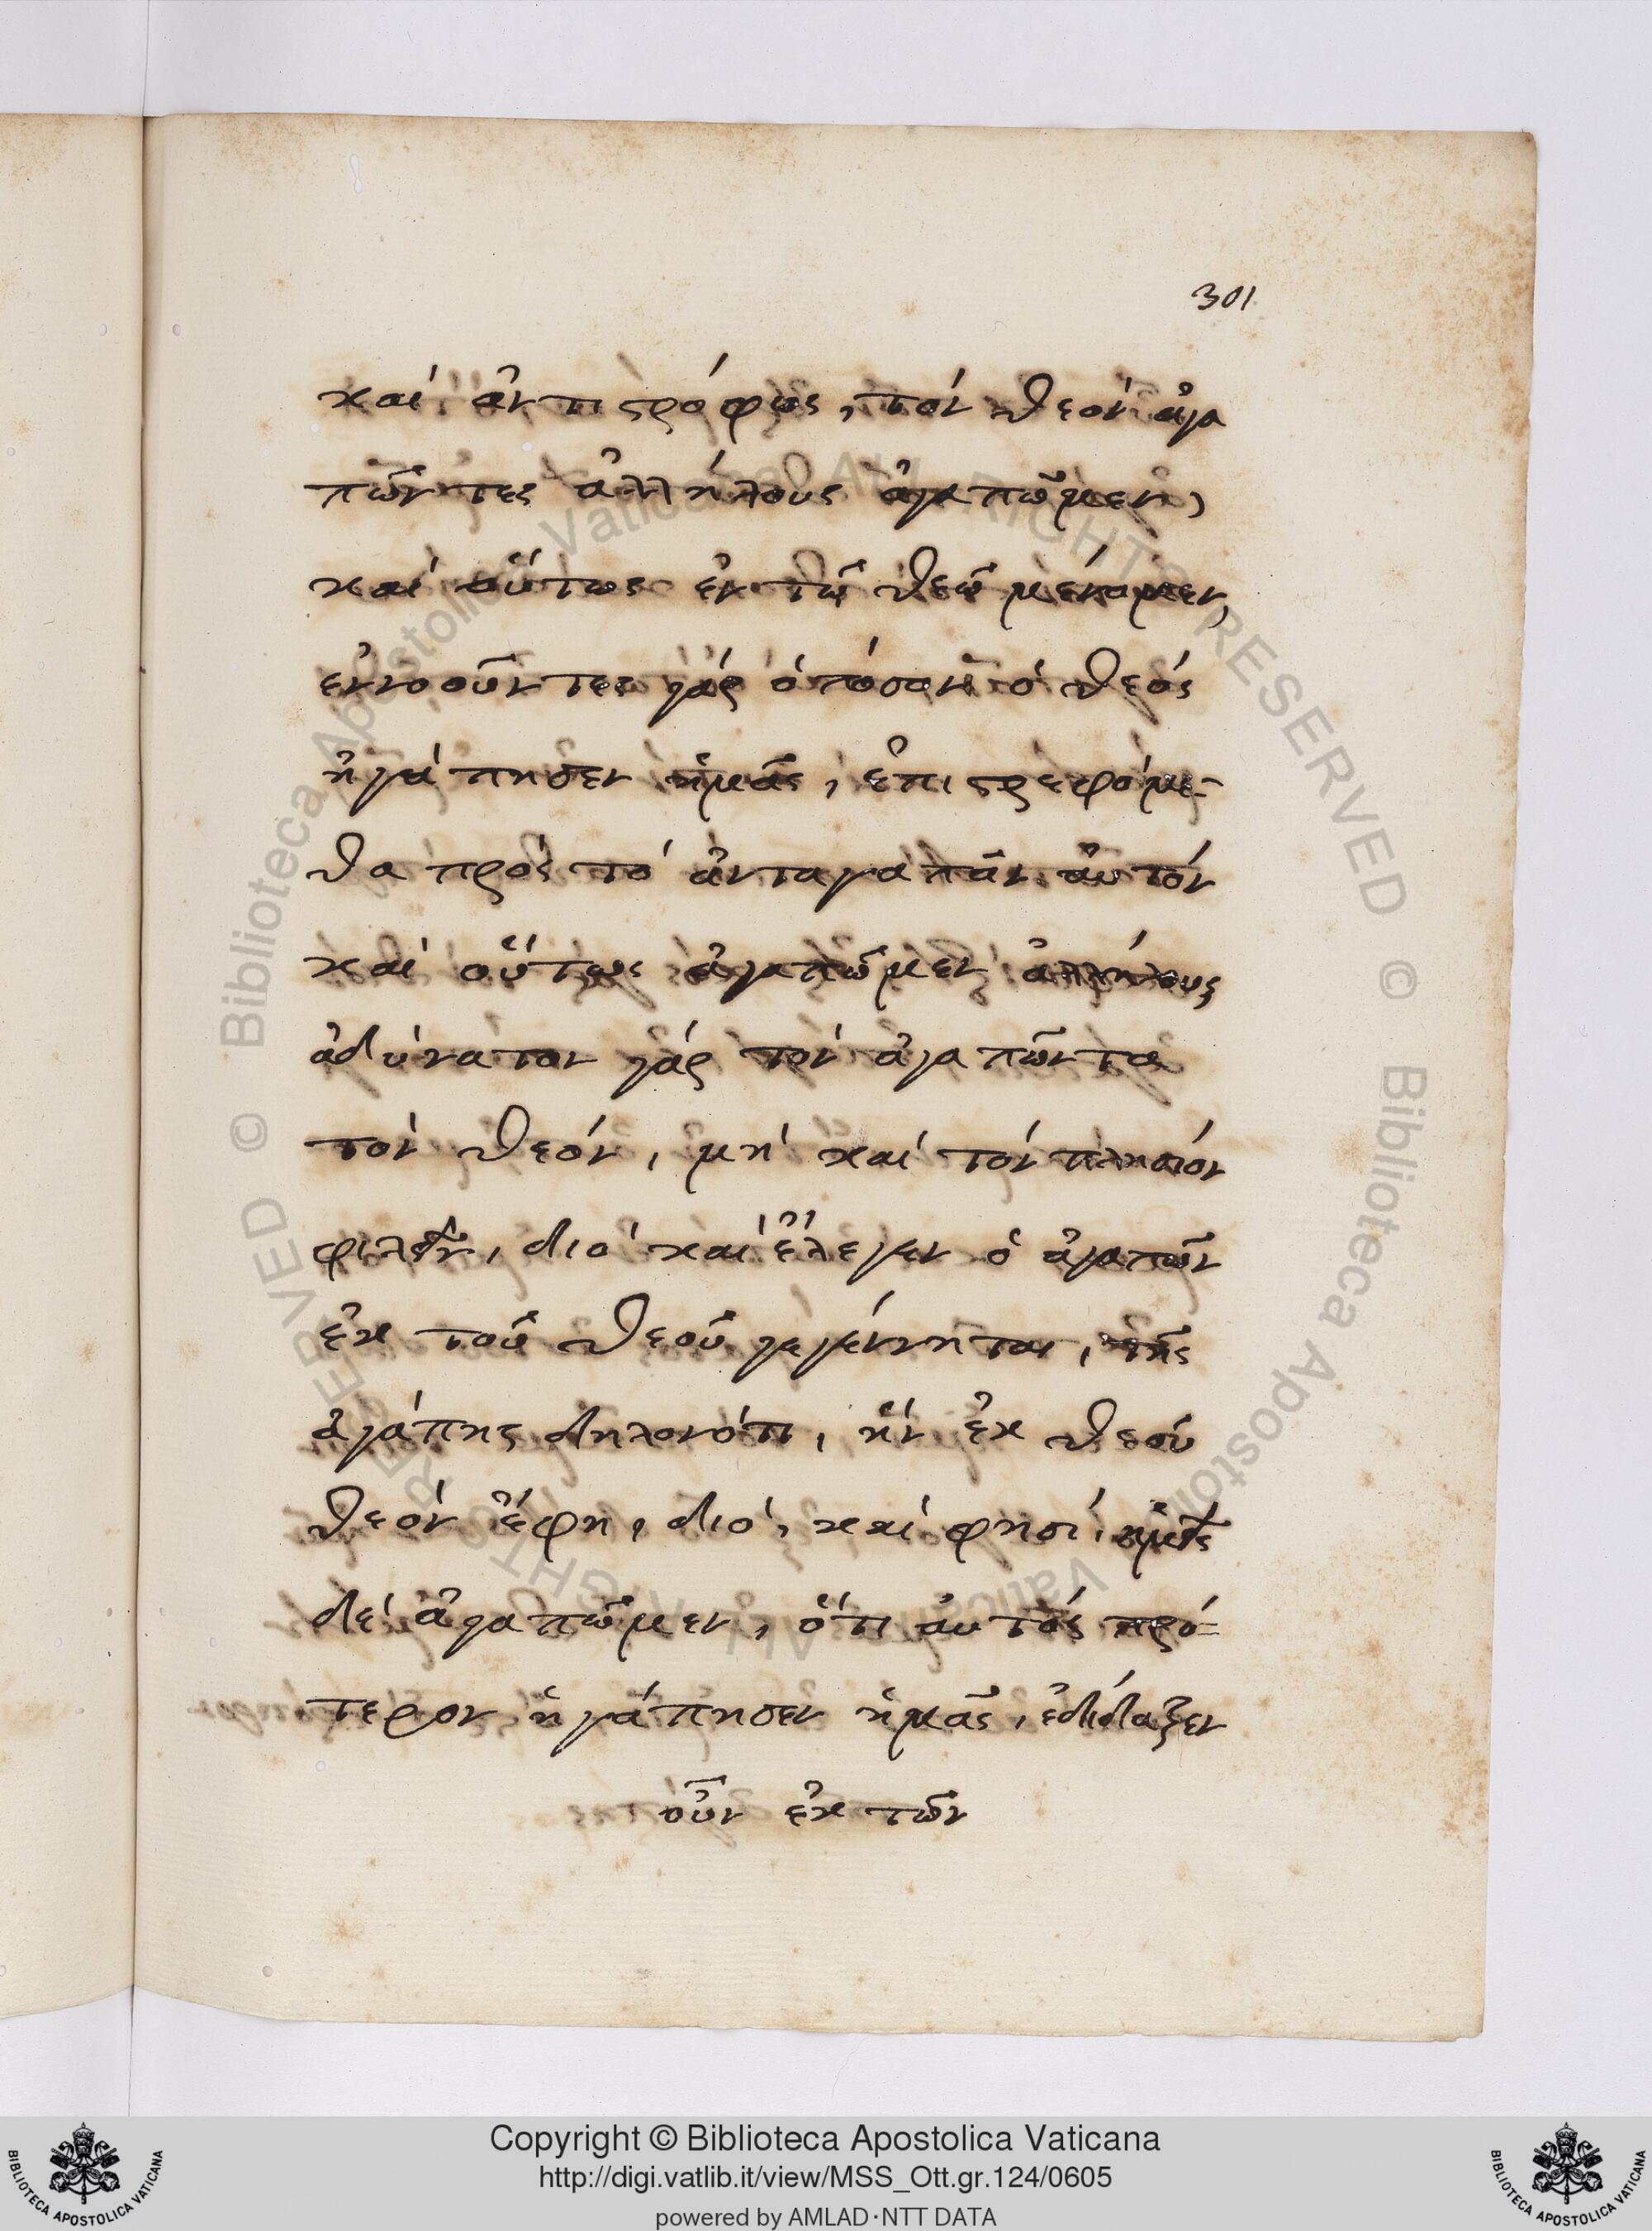 301
καὶ ἀντιστρόφως, τὸν θεὸν ἀγα
πῶντες ἀλλήλους ἀγαπῶμεν,
καὶ οὕτως ἐν τῷ θεῷ μένομεν,
ἐννοοῦντες γὰρ ὁπόσον ὁ θεός
ἠγάπησεν ἡμᾶς, ἐπιστρεφόμε-
θα πρὸς τὸ ἀνταγαπᾶν αὐτόν
καὶ οὕτως ἀγαπῶμεν ἀλλήλους
ἀδύνατον γὰρ τὸν ἀγαπῶντα
τὸν θεόν, μὴ καὶ τὸν πλησίον
φιλεῖν, διὸ καὶ ἔλεγεν ὁ ἀγαπῶν
ἐκ τοῦ θεοῦ γεγέννηται, τῆς
ἀγάπης δηλονότι, ἣν ἐκ θεοῦ
θεὸν ἔφη, διό, καὶ φησί, ἡμεῖς
δὲ ἀγαπῶμεν, ὅτι αὐτὸς πρό=
τερον ἠγάπησεν ἡμᾶς, ἐδίδαξεν
οὖν ἐκ τῶν
Biblioteca Apostolica Vaticana ALL RIGHTS RESERVED ©
Biblioteca Apostolica Vaticana ALL RIGHTS RESERVED ©
Copyright © Biblioteca Apostolica Vaticana
http://digi.vatlib.it/view/MSS_Ott.gr.124/0605
powered by AMLAD·NTT DATA
BIBLIOTECA APOSTOLICA VATICANA
BIBLIOTECA APOSTOLICA VATICANA